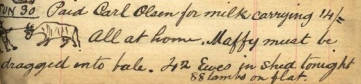 SUN 30 Paid Carl Olsen for milk carrying 14/-
All at home. Maffy must be
dragged into bale. 42 Ewes in shed tonight
88 lambs on flat.